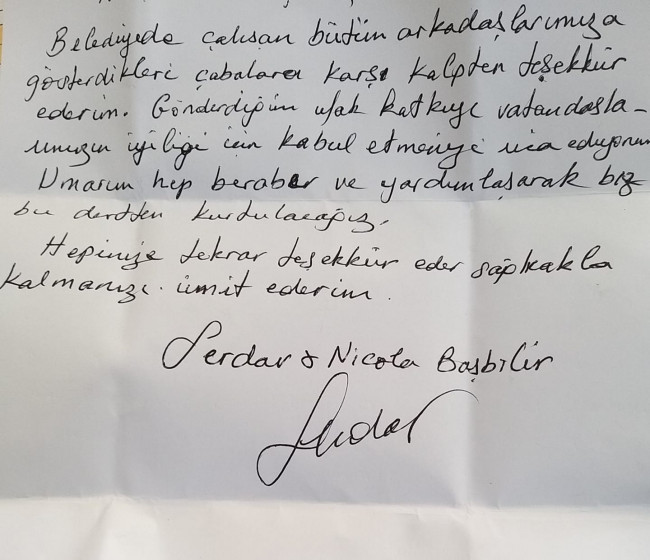 Belediyede çalışan bütün arkadaşlarımıza
gösterdikleri çabalara karşı kalpten teşekkür
ederim. Gönderdiğim ufak katkıyı vatandaşla-
rımızın iyiliği için kabul etmenizi rica ediyorum
Umarım hep beraber ve yardımlaşarak biz
bu dertten kurtulacağız.
Hepinize tekrar teşekkür eder sağlıkla
kalmanızı ümit ederim.
Serdar & Nicola Başbilir
Serdar